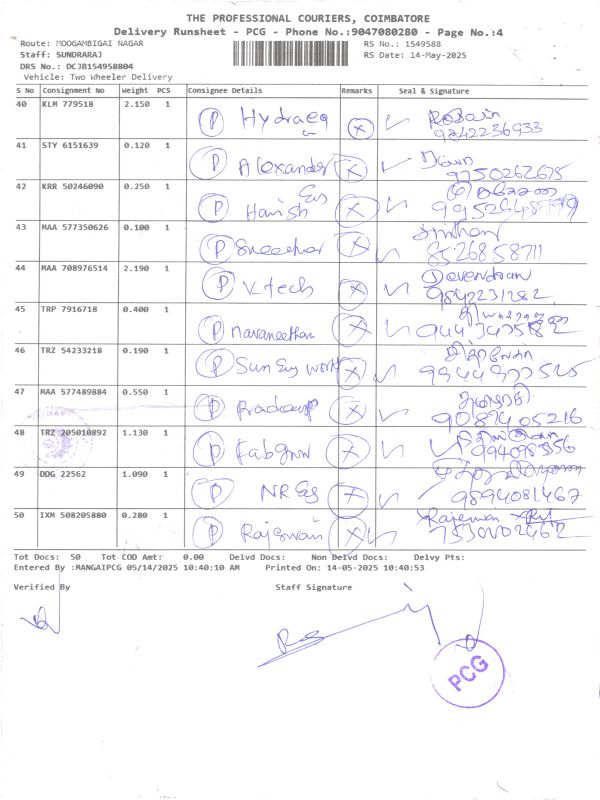 THE PROFESSIONAL COURIERS, COIMBATORE
Delivery Runsheet - PCG - Phone No.:9047080280 - Page No.:4
Route: MOOGAMBIGAI NAGAR RS No.: 1549588
Staff: SUNDRARAJ RS Date: 14-May-2025
DRS No.: DCJB154958804
Vehicle: Two Wheeler Delivery
S No Consignment No Weight PCS Consignee Details Remarks Seal & Signature
40 KLM 779518 2.150 1 P Hydraeq X
9842236933
41 STY 6151639 0.120 1 P Alexander X
9750262675
42 KRR 50246090 0.250 1 P Harish Eng X
43 MAA 577350626 0.100 1 P X
8526858711
44 MAA 708976514 2.190 1 P V-tech X Devendran
9842231282
45 TRP 7916718 0.400 1 P Navaneethan X
46 TRZ 54233218 0.190 1 P Sun Eng work X
9944977515
47 MAA 577489884 0.550 1 P Pradeep X
9087405216
48 TRZ 205010892 1.130 1 P X
49 DDG 22562 1.090 1 P NR Eng X
9894081467
50 IXM 508205880 0.280 1 P Rajeswari X
7530002462
Tot Docs: 50 Tot COD Amt: 0.00 Delvd Docs: Non Delvd Docs: Delvy Pts:
Entered By :MANGAIPCG 05/14/2025 10:40:10 AM Printed On: 14-05-2025 10:40:53
Verified By Staff Signature
PCG